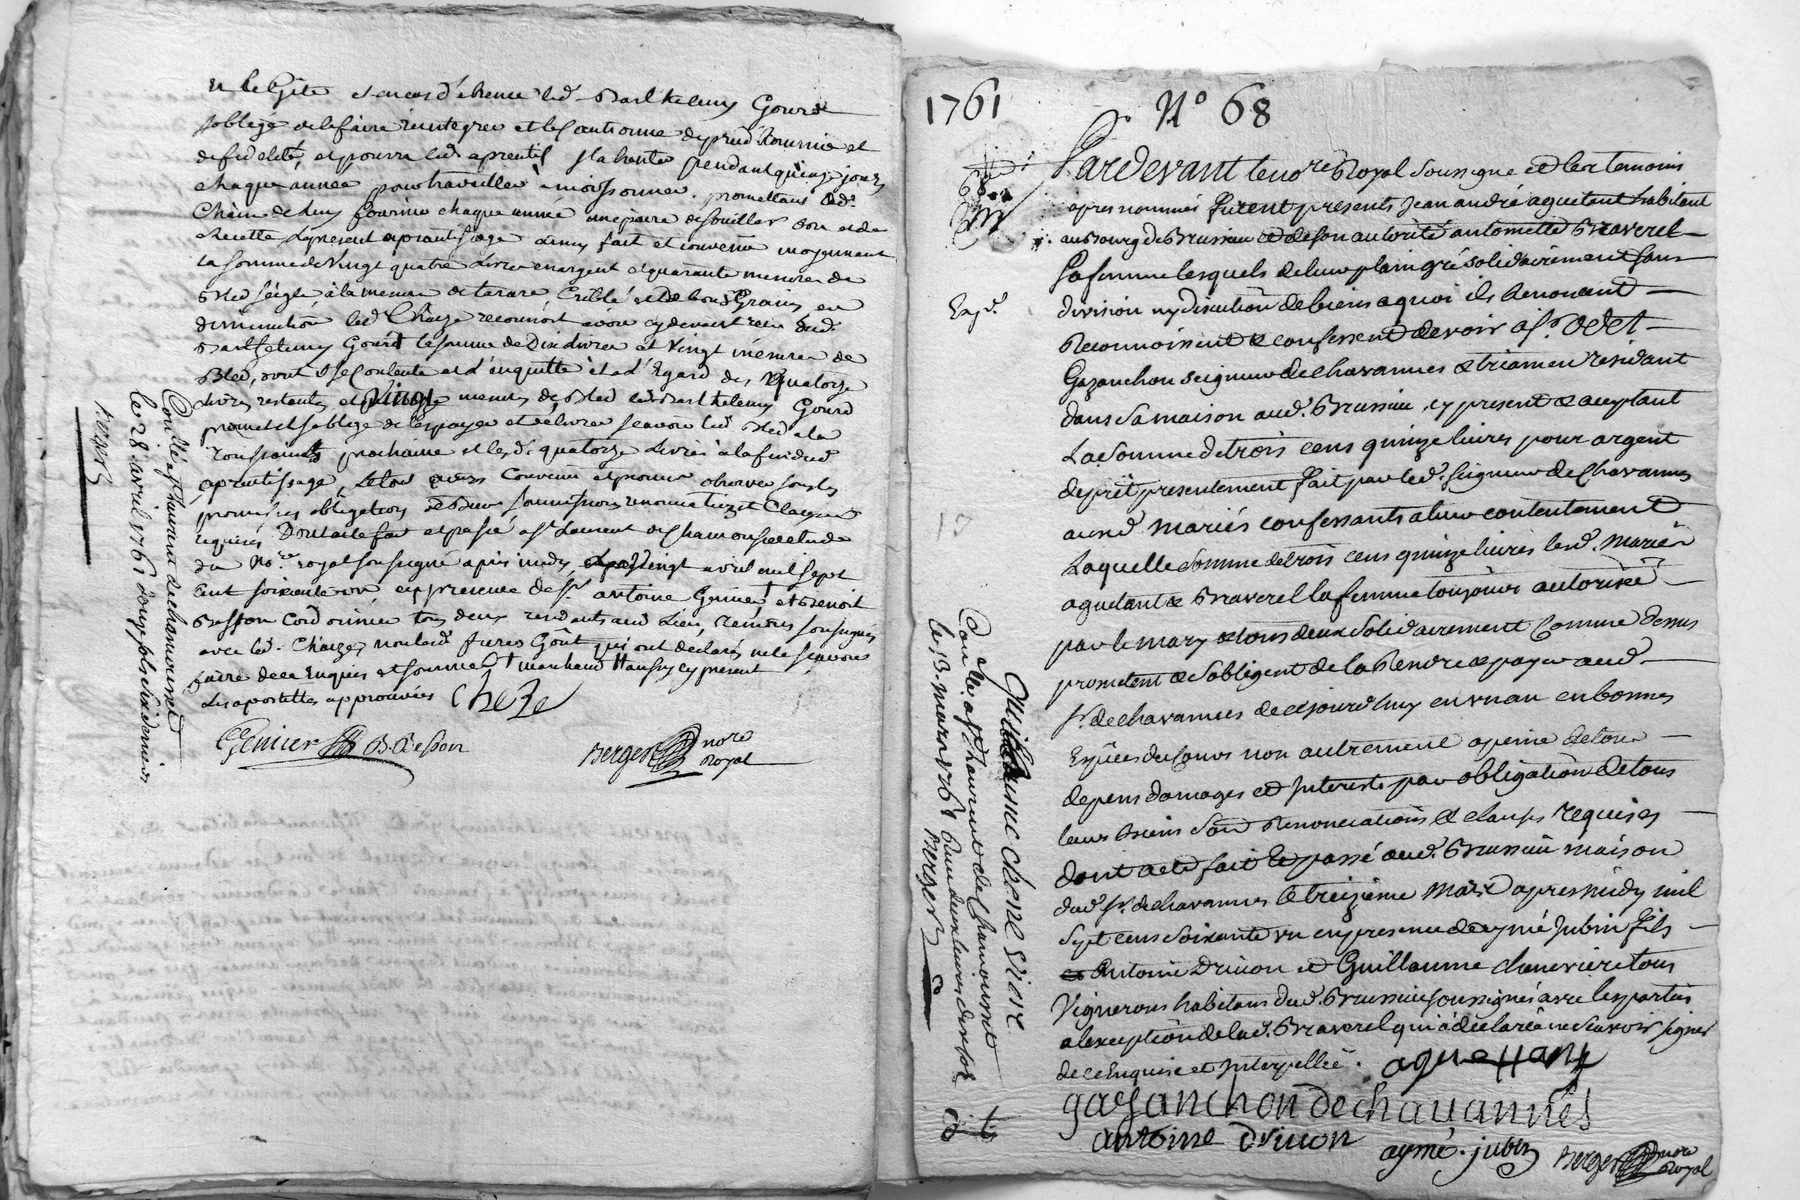 et le Gite et en cas d'absence led. Barthelemy Gourd
soblige de le faire reintegrer et le Cautionne de prud'hommie et
de fidelité, et pourra led. aprentif s'absenter pendant quinze jours
chaque année pour travailler a moissonner. promettant led.
Chèze de luy fournir chaque année une paire de souliers
Recette, le present aprantissage ainsy fait et convenu moyennant
la somme de Vingt quatre Livres en argent et quarante mesures de
Bled seigle à la mesure de tarare, Criblé et de bons Grains, en
diminution led. Chèze reconnoit avoir cy devant receu dud.
Barthelemy Gourd la somme de Dix livres et Vingt mesures de
Bled, dont il se Contente et l'en quitte et a l'Egard des Quatorze
Livres restantes, et Vingt mesures de Bled led. Barthelemy Gourd
promet et soblige de les payer et délivrer scavoir led. Bled a la
Toussaints prochaine et lesd. quatorze Livres à la fin dud.
aprentissage, Le tout ainsy Convenu et promis observer sous les
promesses obligations Soumissions renonciations et Clauses
requises Dont acte fait et passé a St. Laurent de Chamousset etude
du No.re royal soussigné après midy, le Vingt avril mil sept
cent soixante un en presence de Sr. antoine Genier † et Benoit
Besson Cordonnier tous deux residants aud. Lieu, temoins soussignés
avec led. Chèze, non lesd. freres Gourd qui ont declaré ne le scavoir
faire de ce Enquis et sommés † marchand cy present
Les apostilles approuvées Cheze
Genier B. Besson
Berger nore Royal
Con.llé a St. Laurent de Chamousset
le 28. avril 1761 Reçu
Berger
1761 N° 68
Pardevant le no.re Royal Soussigné et les temoins
apres nommés furent presents Jean andré aguetant habitant
au Bourg de Brussieu et de son autorité antoinette Braverel
Sa femme lesquels de leur plain gré solidairement sans
division ny discution de biens a quoi ils Renoncent
Reconnoissent & confessent devoir a Sr. Odet
Gazanchon seigneur de chavannes & triamen residant
dans Sa maison aud. Brussieu, cy present & acceptant
La Somme de trois cens quinze livres pour argent
de prêt presentement fait par led. Seigneur de Chavannes
auxd. Mariés confessants a leur contentement
Laquelle Somme de trois cens quinze livres lesd. Mariés
aguetant & Braverel la femme toujours autorisée
par le mary & tous deux Solidairement Comme dessus
prometent & s'obligent de la Rendre & payer aud.
Sr. de chavannes de cejourd'huy en un an en bonnes
Espèces du Cours non autrement a peine de tous
depens domages et Interests par obligation de tous
leurs biens Sous Renonciations & clauses requises
Dont acte fait & passé aud. Brussieu maison
dud. Sr. de chavannes le treizième Mars apres midy mil
Sept cens Soixante un en presence de aymé Jubin fils
Antoine Drivon et Guillaume chenevieretous
Vignerons habitans dud. Brussieu soussignés avec les parties
a l'exception de lad. Braverel qui a declaré ne Scavoir signer
de ce Enquise et Interpellée. aguettant
gazanchon de chavannes
antoine drivon aymé. jubin Berger nore Royal
Exp.é
17
Guillaume chene viere
Con.llé. a St. Laurent de Chamousset
le 13. mars 1761 Reçu deux livres dix sols
Berger